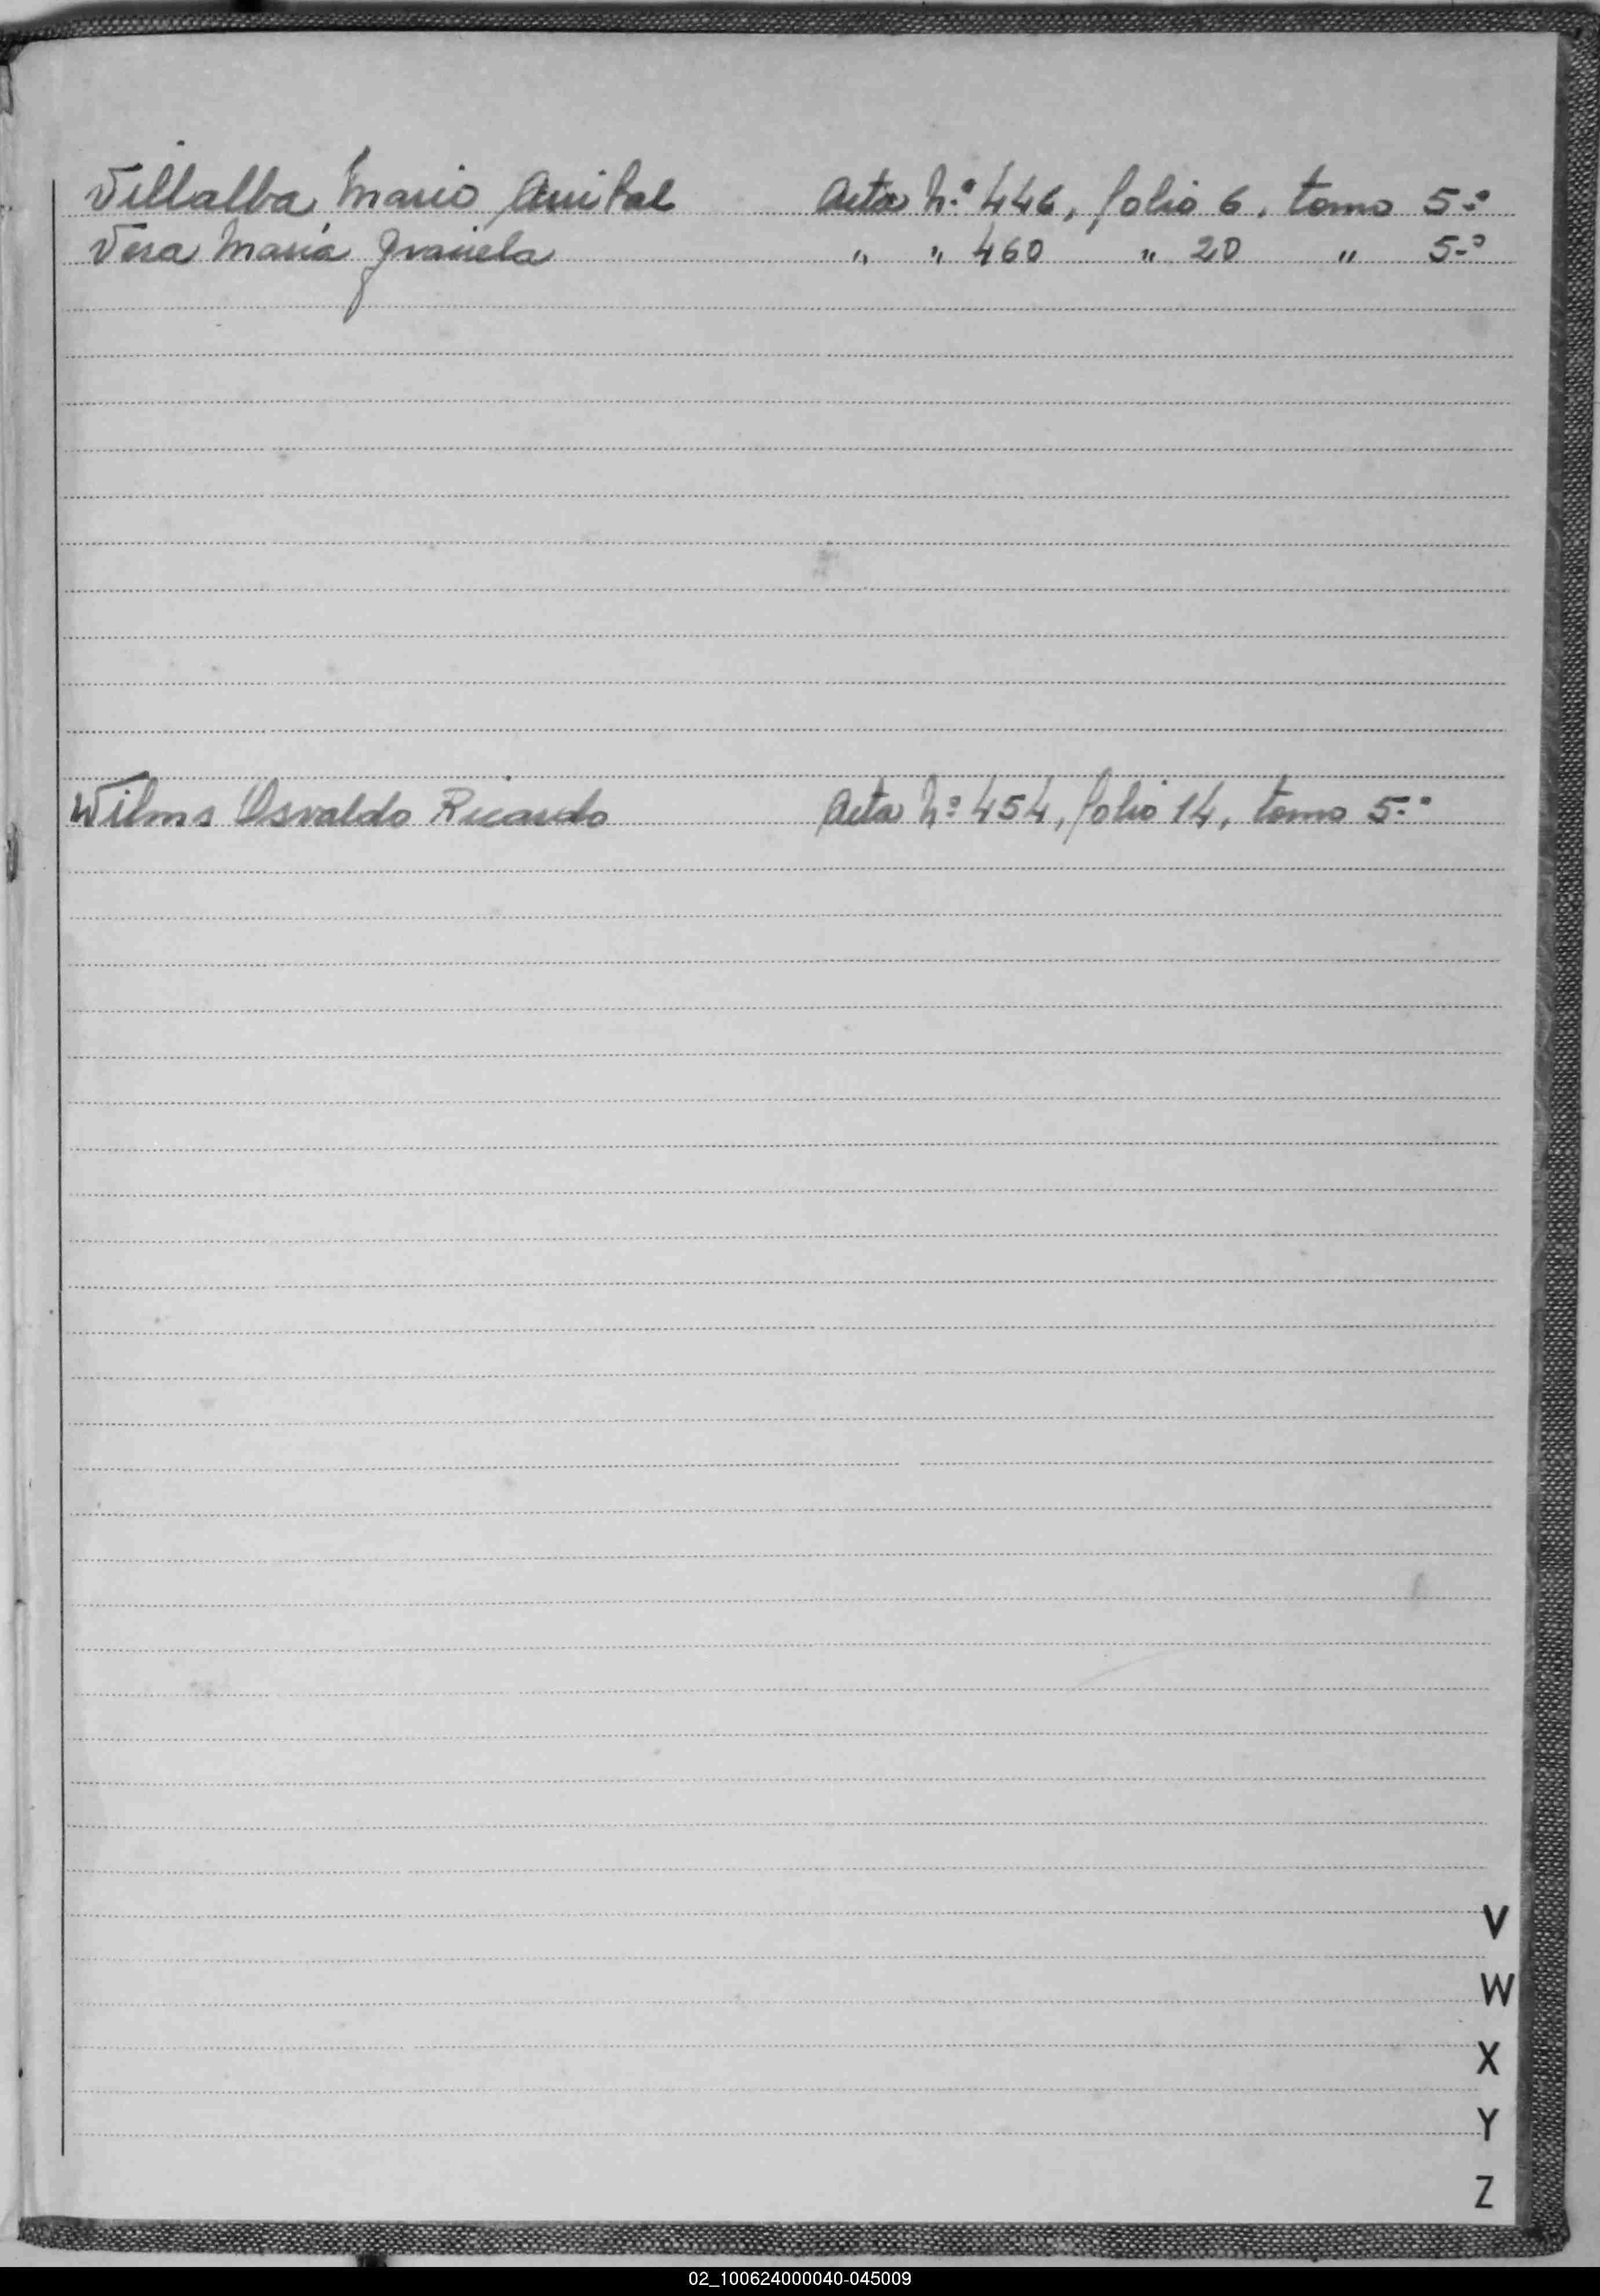 Villalba Mario Anibal Acta Nº 446, folio 6, tomo 5º
Vera María Graciela " " 460 " 20 " 5º
Wilms Osvaldo Ricardo Acta Nº 454, folio 14, tomo 5º
V
W
X
Y
Z
02_100624000040-045009